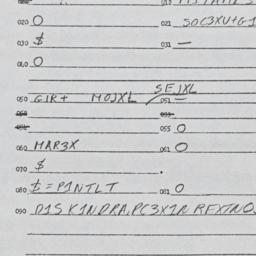 020 O 021 SOC3XU+G1
030 $ 031 —
040 O
SEJXL
050 GIR+ MOJXL 051 —
055 O
060 MAR3X 061 O
070 $
080 $=P1NTLT 081 O
090 D1S K1NDRA,PC3X1R REXTNO